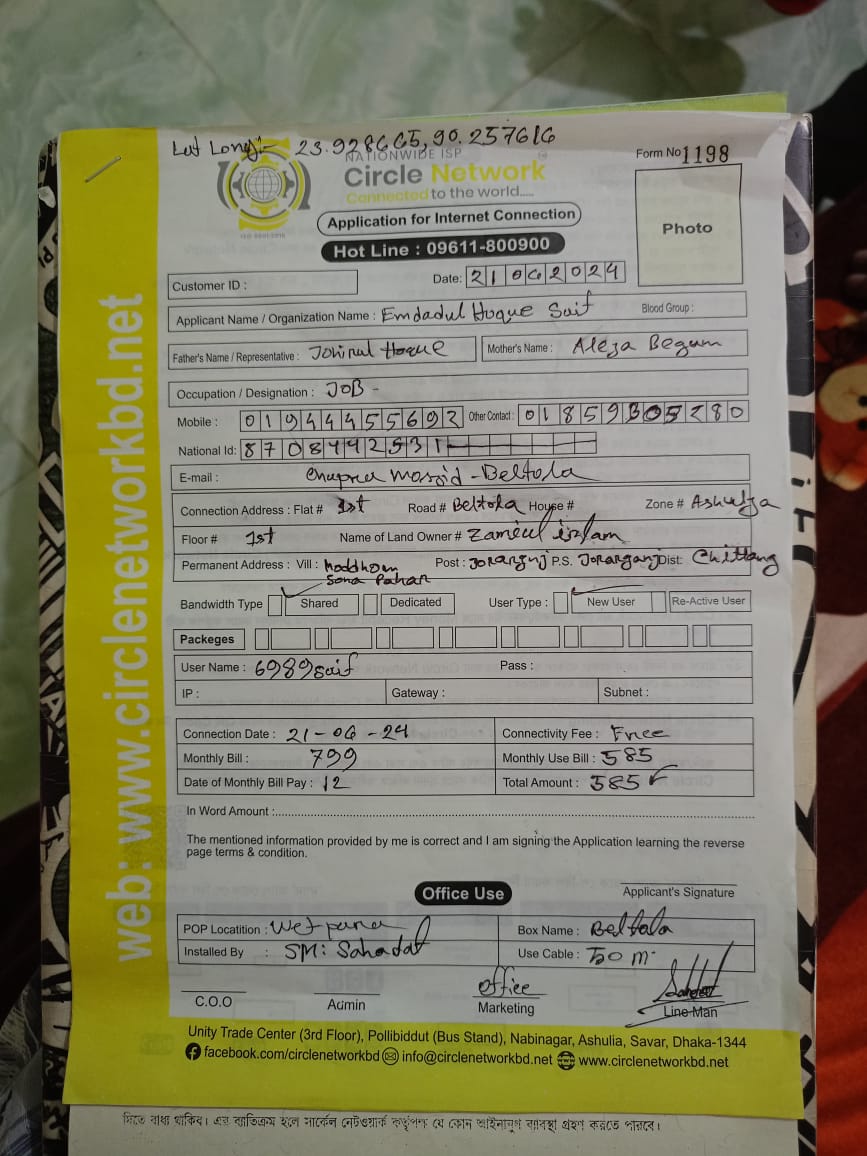 Lat Long:- 23.928665, 90.257616
NATIONWIDE ISP
Form No 1198
Circle Network
Connected to the world.....
Application for Internet Connection
Photo
Hot Line : 09611-800900
Customer ID :
Date: 21062024
Applicant Name / Organization Name : Emdadul Hoque Saif Blood Group :
Father's Name / Representative : Johirul Hoque Mother's Name : Aleja Begum
Occupation / Designation : JOB -
Mobile : 01944455692 Other Contact : 01859305280
National Id: 8708442531
E-mail : Chapra Mosjid - Beltola
Connection Address : Flat # 1st Road # Beltola House # Zone # Ashulya
Floor # 1st Name of Land Owner # Zamiul islam
Permanent Address : Vill : Maddhom Sona Pahar Post : Jorargnj P.S. Jorarganj Dist: Chittang
Bandwidth Type Shared Dedicated User Type : New User Re-Active User
Packeges
User Name : 6989saif Pass :
IP : Gateway : Subnet :
Connection Date : 21-06-24 Connectivity Fee : Free
Monthly Bill : 799 Monthly Use Bill : 585
Date of Monthly Bill Pay : 12 Total Amount : 585
In Word Amount :
The mentioned information provided by me is correct and I am signing the Application learning the reverse
page terms & condition.
Applicant's Signature
Office Use
POP Locatition : Box Name : Beltala
Installed By : SM: Sahadat Use Cable : 50 m
office
C.O.O Admin Marketing Line Man
Unity Trade Center (3rd Floor), Pollibiddut (Bus Stand), Nabinagar, Ashulia, Savar, Dhaka-1344
facebook.com/circlenetworkbd info@circlenetworkbd.net www.circlenetworkbd.net
web: www.circlenetworkbd.net
দিতে বাধ্য থাকিব। এর ব্যতিক্রম হলে সার্কেল নেটওয়ার্ক কর্তৃপক্ষ যে কোন আইনানুগ ব্যবস্থা গ্রহণ করতে পারবে।